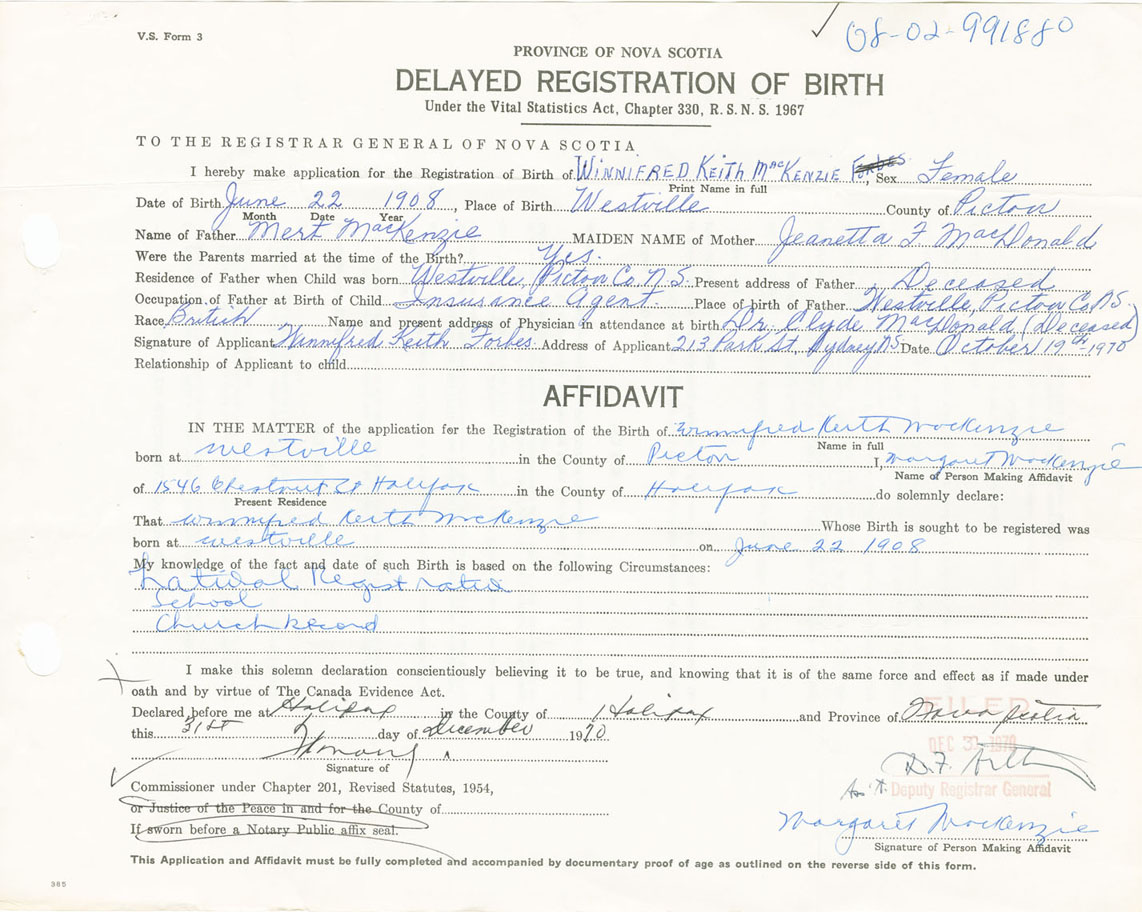 08-02-991880
V.S. Form 3
PROVINCE OF NOVA SCOTIA
DELAYED REGISTRATION OF BIRTH
Under the Vital Statistics Act, Chapter 330, R.S.N.S. 1967
TO THE REGISTRAR GENERAL OF NOVA SCOTIA
I hereby make application for the Registration of Birth of WINNIFRED KEITH MacKENZIE Forbes, Sex Female
Print Name in full
Date of Birth June 22 1908, Place of Birth Westville County of Pictou
Month Date Year
Name of Father Mert MacKenzie MAIDEN NAME of Mother Jeanetta F MacDonald
Were the Parents married at the time of the Birth? Yes.
Residence of Father when Child was born Westville, Pictou Co. N.S. Present address of Father Deceased
Occupation of Father at Birth of Child Insurance Agent Place of birth of Father Westville, Pictou Co. N.S.
Race British Name and present address of Physician in attendance at birth Dr. Clyde MacDonald (Deceased)
Signature of Applicant Winnifred Keith Forbes Address of Applicant 213 Park St, Sydney NS Date October 19th 1970
Relationship of Applicant to child
AFFIDAVIT
IN THE MATTER of the application for the Registration of the Birth of Winnifred Keith MacKenzie
Name in full
born at Westville in the County of Pictou I, Margaret MacKenzie
Name of Person Making Affidavit
of 1546 Chestnut St Halifax in the County of Halifax do solemnly declare:
Present Residence
That Winnifred Keith McKenzie Whose Birth is sought to be registered was
born at Westville on June 22 1908
My knowledge of the fact and date of such Birth is based on the following Circumstances:
Registration
School
Church Record
I make this solemn declaration conscientiously believing it to be true, and knowing that it is of the same force and effect as if made under
oath and by virtue of The Canada Evidence Act.
Declared before me at Halifax in the County of Halifax and Province of Nova Scotia
this 31st day of December 1970
FILED
DEC 31 1970
Signature of
Deputy Registrar General
Commissioner under Chapter 201, Revised Statutes, 1954,
or Justice of the Peace in and for the County of
If sworn before a Notary Public affix seal.
Margaret MacKenzie
Signature of Person Making Affidavit
This Application and Affidavit must be fully completed and accompanied by documentary proof of age as outlined on the reverse side of this form.
385